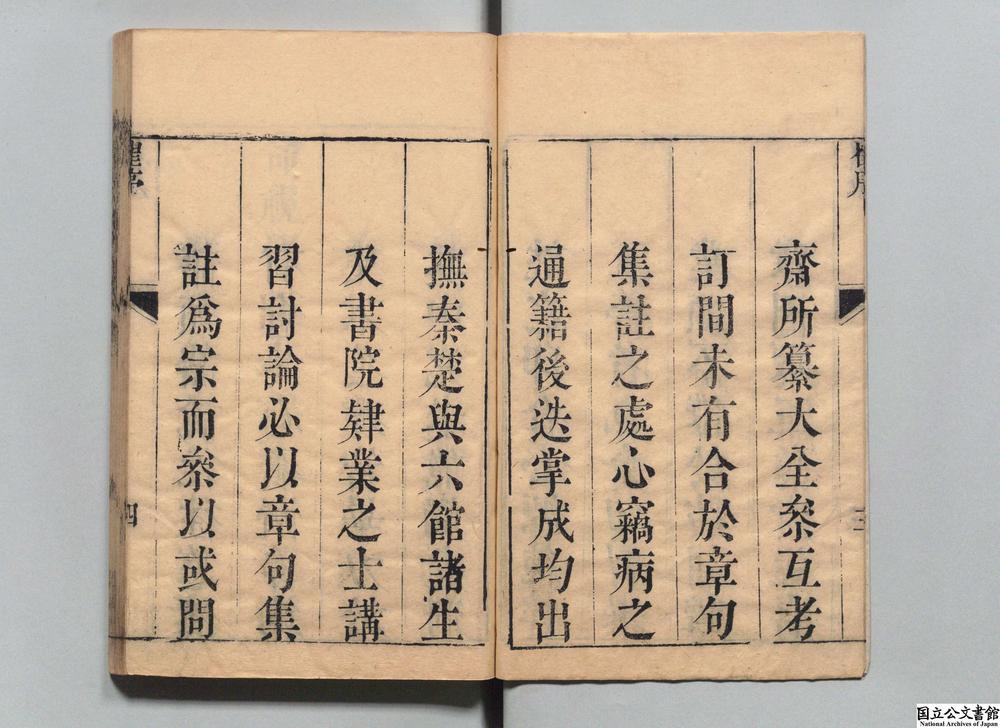 齋所纂大全叅互考
訂間未有合於章句
集註之處心竊病之
通籍後迭掌成均出
撫秦楚與六館諸生
及書院肄業之士講
習討論必以章句集
註爲宗而叅以或問
四
国立公文書館
National Archives of Japan